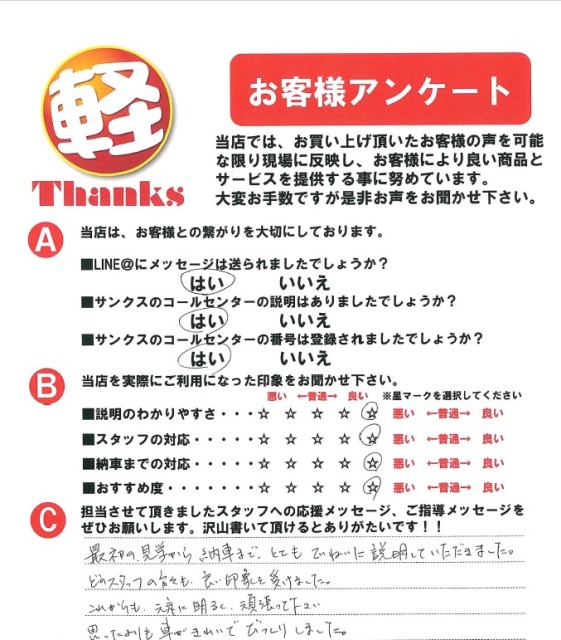 軽
Thanks
お客様アンケート
当店では、お買い上げ頂いたお客様の声を可能
な限り現場に反映し、お客様により良い商品と
サービスを提供する事に努めています。
大変お手数ですが是非お声をお聞かせ下さい。
A 当店は、お客様との繋がりを大切にしております。
■LINE@にメッセージは送られましたでしょうか？
はい いいえ
■サンクスのコールセンターの説明はありましたでしょうか？
はい いいえ
■サンクスのコールセンターの番号は登録されましたでしょうか？
はい いいえ
B 当店を実際にご利用になった印象をお聞かせ下さい。
※星マークを選択してください
悪い ←普通→ 良い
■説明のわかりやすさ・・・☆ ☆ ☆ ☆ ☆ 悪い ←普通→ 良い
■スタッフの対応・・・・・☆ ☆ ☆ ☆ ☆ 悪い ←普通→ 良い
■納車までの対応・・・・・☆ ☆ ☆ ☆ ☆ 悪い ←普通→ 良い
■おすすめ度・・・・・・・☆ ☆ ☆ ☆ ☆ 悪い ←普通→ 良い
C 担当させて頂きましたスタッフへの応援メッセージ、ご指導メッセージを
ぜひお願いします。沢山書いて頂けるとありがたいです！！
最初の見学から納車まで、とてもていねいに説明していただきました。
どのスタッフの方々も、良い印象を受けました。
これからも、元気に明るく、頑張って下さい
思ったよりも車がきれいでびっくりしました。